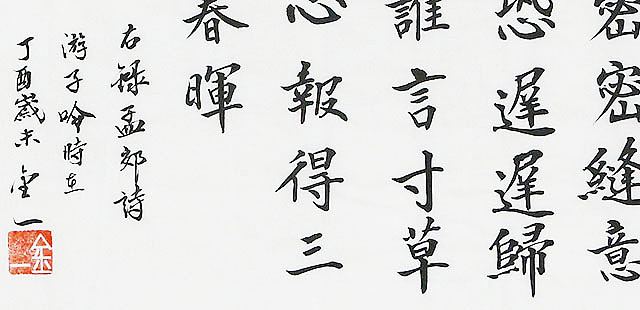 密密縫意
恐遲遲歸
誰言寸草
心報得三
春暉
右錄孟郊詩
游子吟時在
丁酉歲末金一
金一